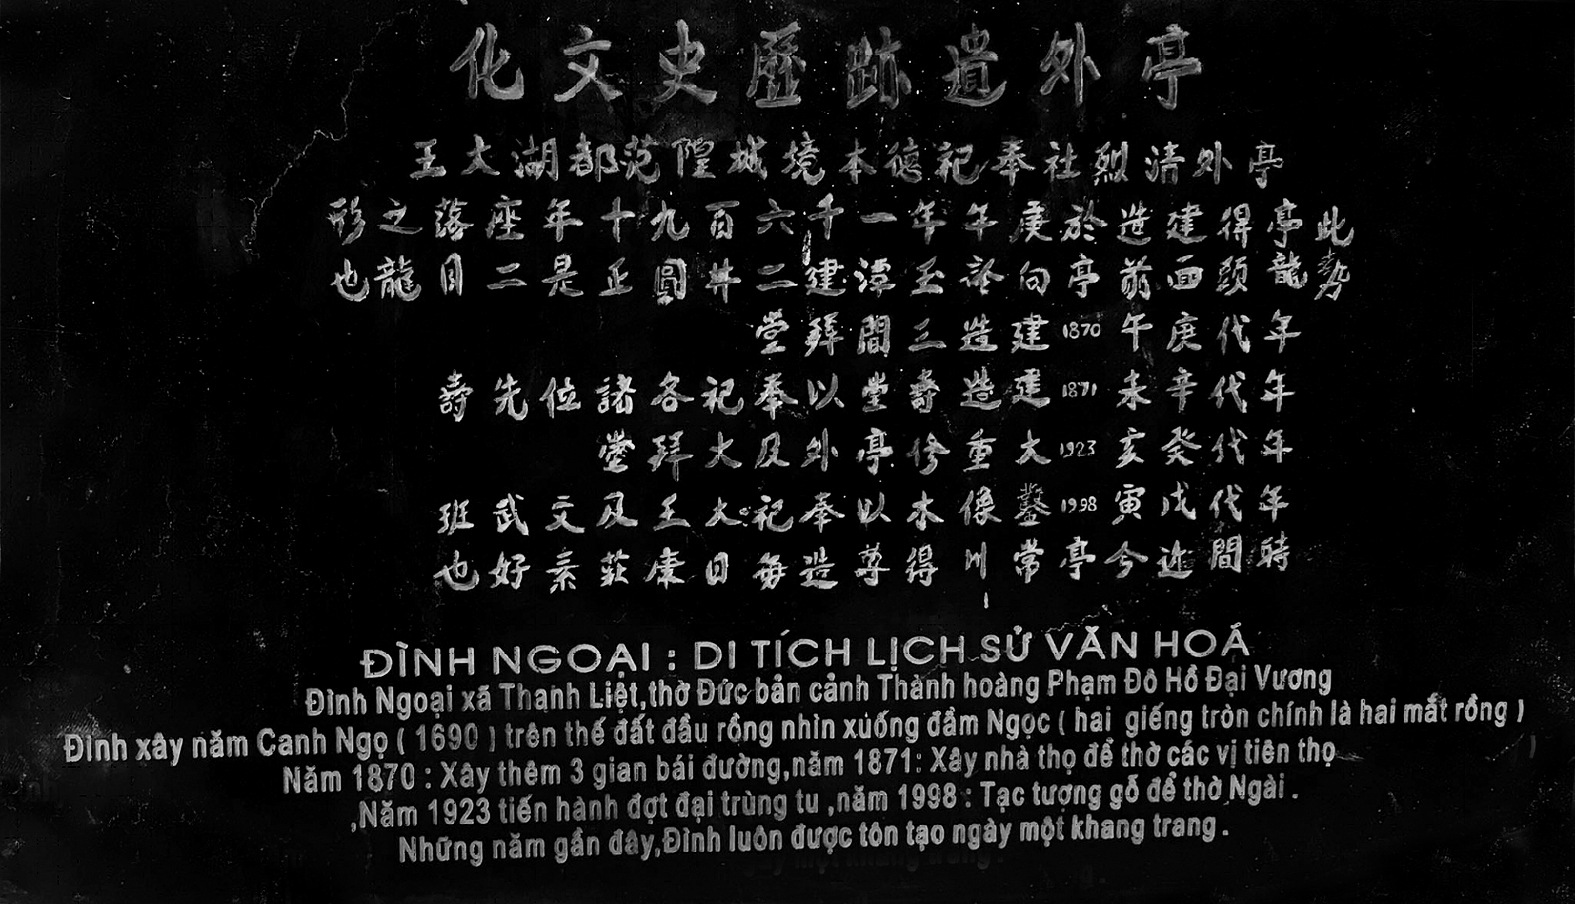 亭外遺跡歷史文化
亭外清烈社奉祀德本境城隍范都湖大王
此亭得建造於庚午年一千六百九十年座落之形
勢龍頭面前亭向診玉潭建二井圓正是二目龍也
年代庚午1870建造三間拜堂
年代辛未1871建造壽堂以奉祀各諸位先壽
年代癸亥1923大重修亭外及大拜堂
年代戊寅1998鑿像木以奉祀大王及文武班
時間近今亭常川得尊造每日康莊素好也
ĐÌNH NGOẠI : DI TÍCH LỊCH SỬ VĂN HOÁ
Đình Ngoại xã Thanh Liệt,thờ Đức bản cảnh Thành hoàng Phạm Đô Hồ Đại Vương
Đình xây năm Canh Ngọ ( 1690 ) trên thế đất đầu rồng nhìn xuống đầm Ngọc ( hai giếng tròn chính là hai mắt rồng )
Năm 1870 : Xây thêm 3 gian bái đường,năm 1871: Xây nhà thọ để thờ các vị tiên thọ
,Năm 1923 tiến hành đợt đại trùng tu ,năm 1998 : Tạc tượng gỗ để thờ Ngài .
Những năm gần đây,Đình luôn được tôn tạo ngày một khang trang .